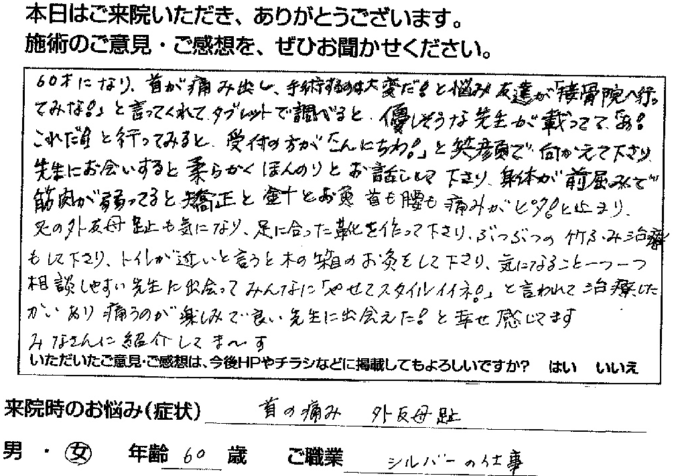 本日はご来院いただき、ありがとうございます。
施術のご意見・ご感想を、ぜひお聞かせください。
60才になり、首が痛み出し、手術するのは大変だ!と悩み友達が「接骨院へ行っ
てみな!」と言ってくれてタブレットで調べると、優しそうな先生が載ってて、あ!
これだ!!と行ってみると、受付の方が「こんにちわ!」と笑顔で向かえて下さり
先生にお会いすると柔らかくほんのりとお話しして下さり、身体が前屈みで
筋肉が弱ってると矯正と針とお灸 首も腰も痛みがピタ!と止まり、
足の外反母趾も気になり、足に合った靴を作って下さり、ぶつぶつの竹ふみ治療
もして下さり、トイレが近いと言うと木の箱のお灸をして下り、気になること一つ一つ
相談しやすい先生に出会ってみんなに「やせてスタイルイイネ!」と言われて治療した
かいあり 痛うのが楽しみで良い先生に出会えた!と幸せ感じてます
みなさんに紹介してま〜す
いただいたご意見・ご感想は、今後HPやチラシなどに掲載してもよろしいですか? はい いいえ
来院時のお悩み(症状) 首の痛み 外反母趾
男 ・ 女 年齢 60 歳 ご職業 シルバーの仕事